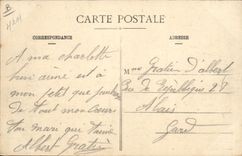 CARTE POSTALE
CORRESPONDANCE
ADRESSE
A ma charlotte
bien aimé est à
mon petit que j'embrasse
de tout mon cœur
ton mari que t'aime
Albert Gratien
Mme Gratien d'albert
Rue de République 27
Alais
Gard